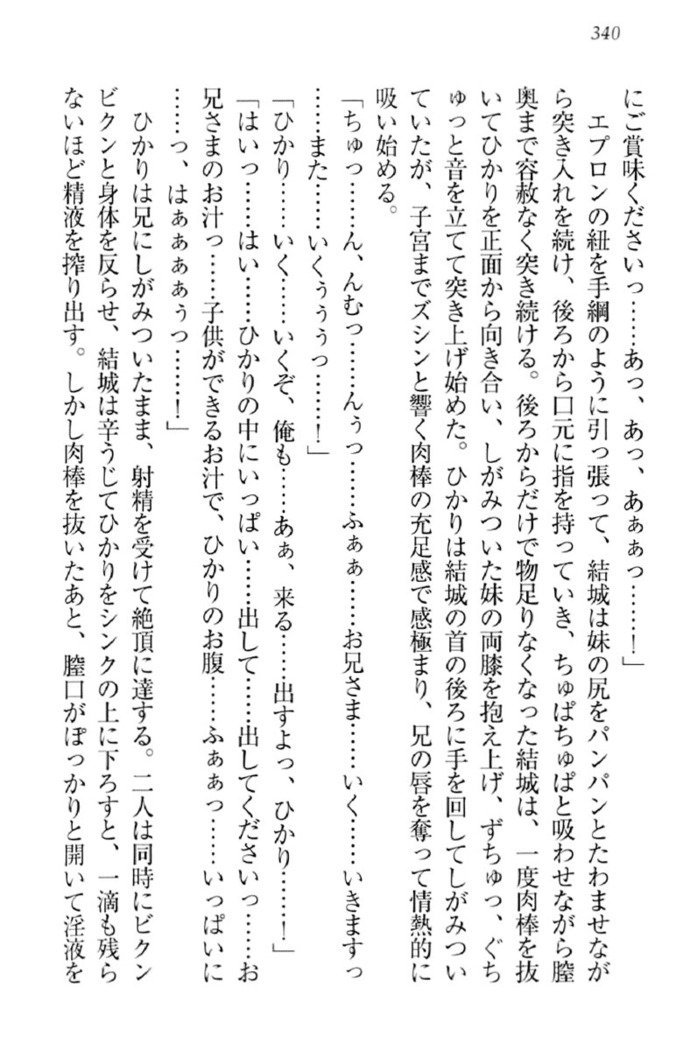 340
にご賞味くださいっ……あっ、あっ、あぁぁっ……！」
エプロンの紐を手綱のように引っ張って、結城は妹の尻をパンパンとたわませなが
ら突き入れを続け、後ろから口元に指を持っていき、ちゅぱちゅぱと吸わせながら膣
奥まで容赦なく突き続ける。後ろからだけで物足りなくなった結城は、一度肉棒を抜
いてひかりを正面から向き合い、しがみついた妹の両膝を抱え上げ、ずちゅっ、ぐち
ゅっと音を立てて突き上げ始めた。ひかりは結城の首の後ろに手を回してしがみつい
ていたが、子宮までズシンと響く肉棒の充足感で感極まり、兄の唇を奪って情熱的に
吸い始める。
「ちゅっ……ん、んむっ……んぅっ……ふぁぁ……お兄さま……いく……いきますっ
……また……いくぅぅぅっ……！」
「ひかり……いく……いくぞ、俺も……あぁ、来る……出すよっ、ひかり……！」
「はいっ……はい……ひかりの中にいっぱい……出して……出してくださいっ……お
兄さまのお汁っ……子供ができるお汁で、ひかりのお腹……ふぁぁっ……いっぱいに
……っ、はぁぁぁぁぅっ……！」
ひかりは兄にしがみついたまま、射精を受けて絶頂に達する。二人は同時にビクン
ビクンと身体を反らせ、結城は辛うじてひかりをシンクの上に下ろすと、一滴も残ら
ないほど精液を搾り出す。しかし肉棒を抜いたあと、膣口がぽっかりと開いて淫液を